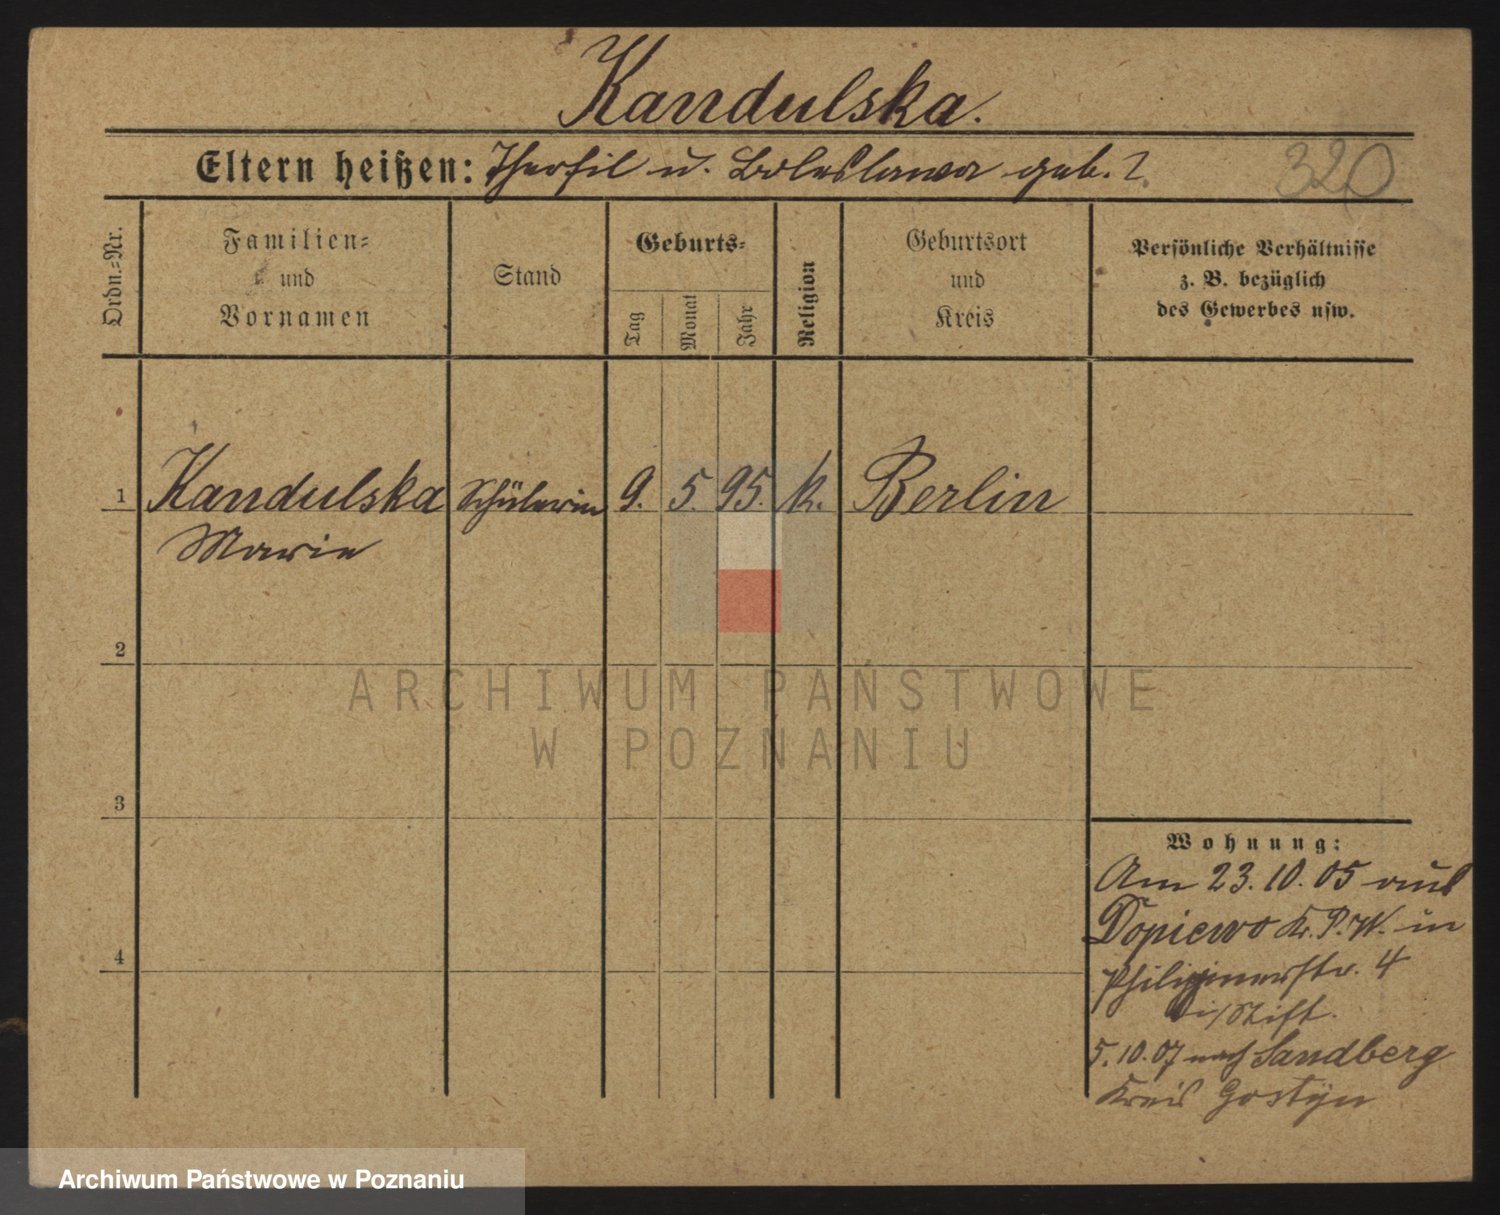 Kandulska.
Eltern heißen: Theofil u. Boleslawa geb. ?
320
Ordn.-Nr.
Familien-
und
Vornamen
Stand
Geburts-
Tag
Monat
Jahr
Religion
Geburtsort
und
Kreis
Persönliche Verhältnisse
z. B. bezüglich
des Gewerbes usw.
1 Kandulska Schülerin 9. 5. 95. k. Berlin
Marie
2
3
4
Wohnung:
Am 23.10.05 aus
Dopiewo Kr. P.W. in
Philippinerstr. 4
i/Stift.
5.10.07 nach Sandberg
Kreis Gostyn
ARCHIWUM PAŃSTWOWE
W POZNANIU
Archiwum Państwowe w Poznaniu